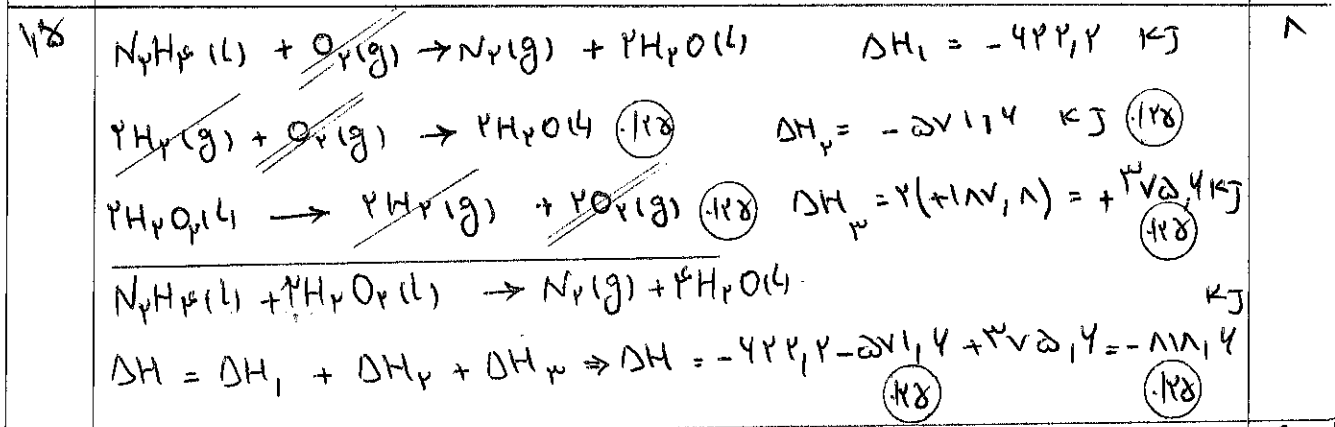 ۱,۵ N۲H۴(l) + O۲(g) → N۲(g) + ۲H۲O(l) ΔH۱ = -۶۲۲,۲ KJ ۸
۲H۲(g) + O۲(g) → ۲H۲O(l) ۰/۲۵ ΔH۲ = -۵۷۱,۶ KJ ۰/۲۵
۲H۲O۲(l) → ۲H۲(g) + ۲O۲(g) ۰/۲۵ ΔH۳ = ۲(+۱۸۷,۸) = +۳۷۵,۶ KJ ۰/۲۵
N۲H۴(l) + ۲H۲O۲(l) → N۲(g) + ۴H۲O(l)
ΔH = ΔH۱ + ΔH۲ + ΔH۳ ⇒ ΔH = -۶۲۲,۲ -۵۷۱,۶ +۳۷۵,۶ = -۸۱۸,۶ KJ
۰/۲۵ ۰/۲۵